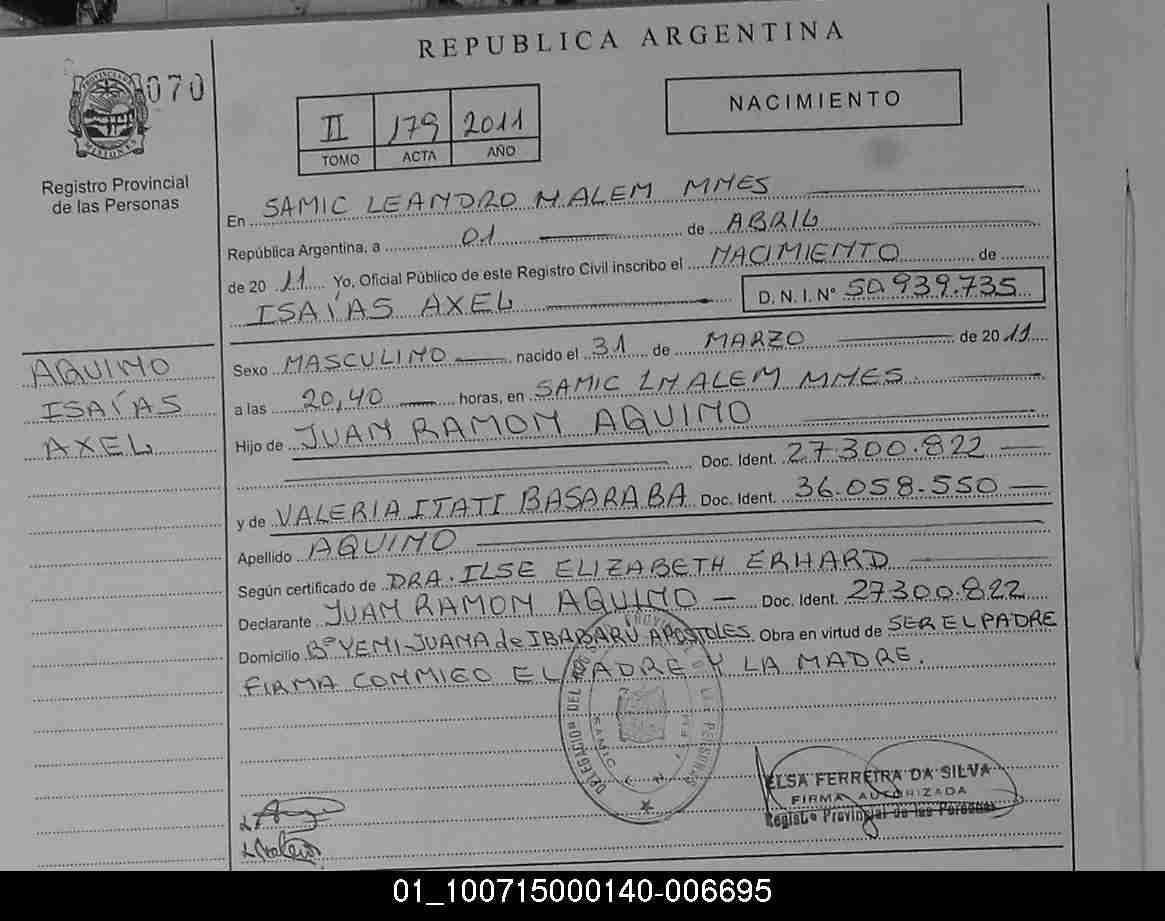 REPUBLICA ARGENTINA
070
PROVINCIA DE
MISIONES
Registro Provincial
de las Personas
II 179 2011
TOMO ACTA AÑO
NACIMIENTO
En SAMIC LEANDRO N ALEM MNES
República Argentina, a 01 de ABRIL
de 2011 Yo, Oficial Público de este Registro Civil inscribo el NACIMIENTO de
ISAÍAS AXEL D. N. I. N° 50.939.735
AQUINO
ISAÍAS
AXEL
Sexo MASCULINO nacido el 31 de MARZO de 2011
a las 20,40 horas, en SAMIC LN ALEM MNES
Hijo de JUAN RAMON AQUINO
Doc. Ident. 27.300.822
y de VALERIA ITATI BASARABA Doc. Ident. 36.058.550
Apellido AQUINO
Según certificado de DRA. ILSE ELIZABETH ERHARD
Declarante JUAN RAMON AQUINO Doc. Ident. 27300.822
Domicilio B° YEMI-JUANA de IBABARU APOSTOLES Obra en virtud de SER EL PADRE
FIRMA CONMIGO EL PADRE Y LA MADRE.
DELEGACION DEL REG. PROVINCIAL DE LAS PERSONAS
SAMIC
ELSA FERREIRA DA SILVA
FIRMA AUTORIZADA
Regist° Provincial de las Personas
01_100715000140-006695